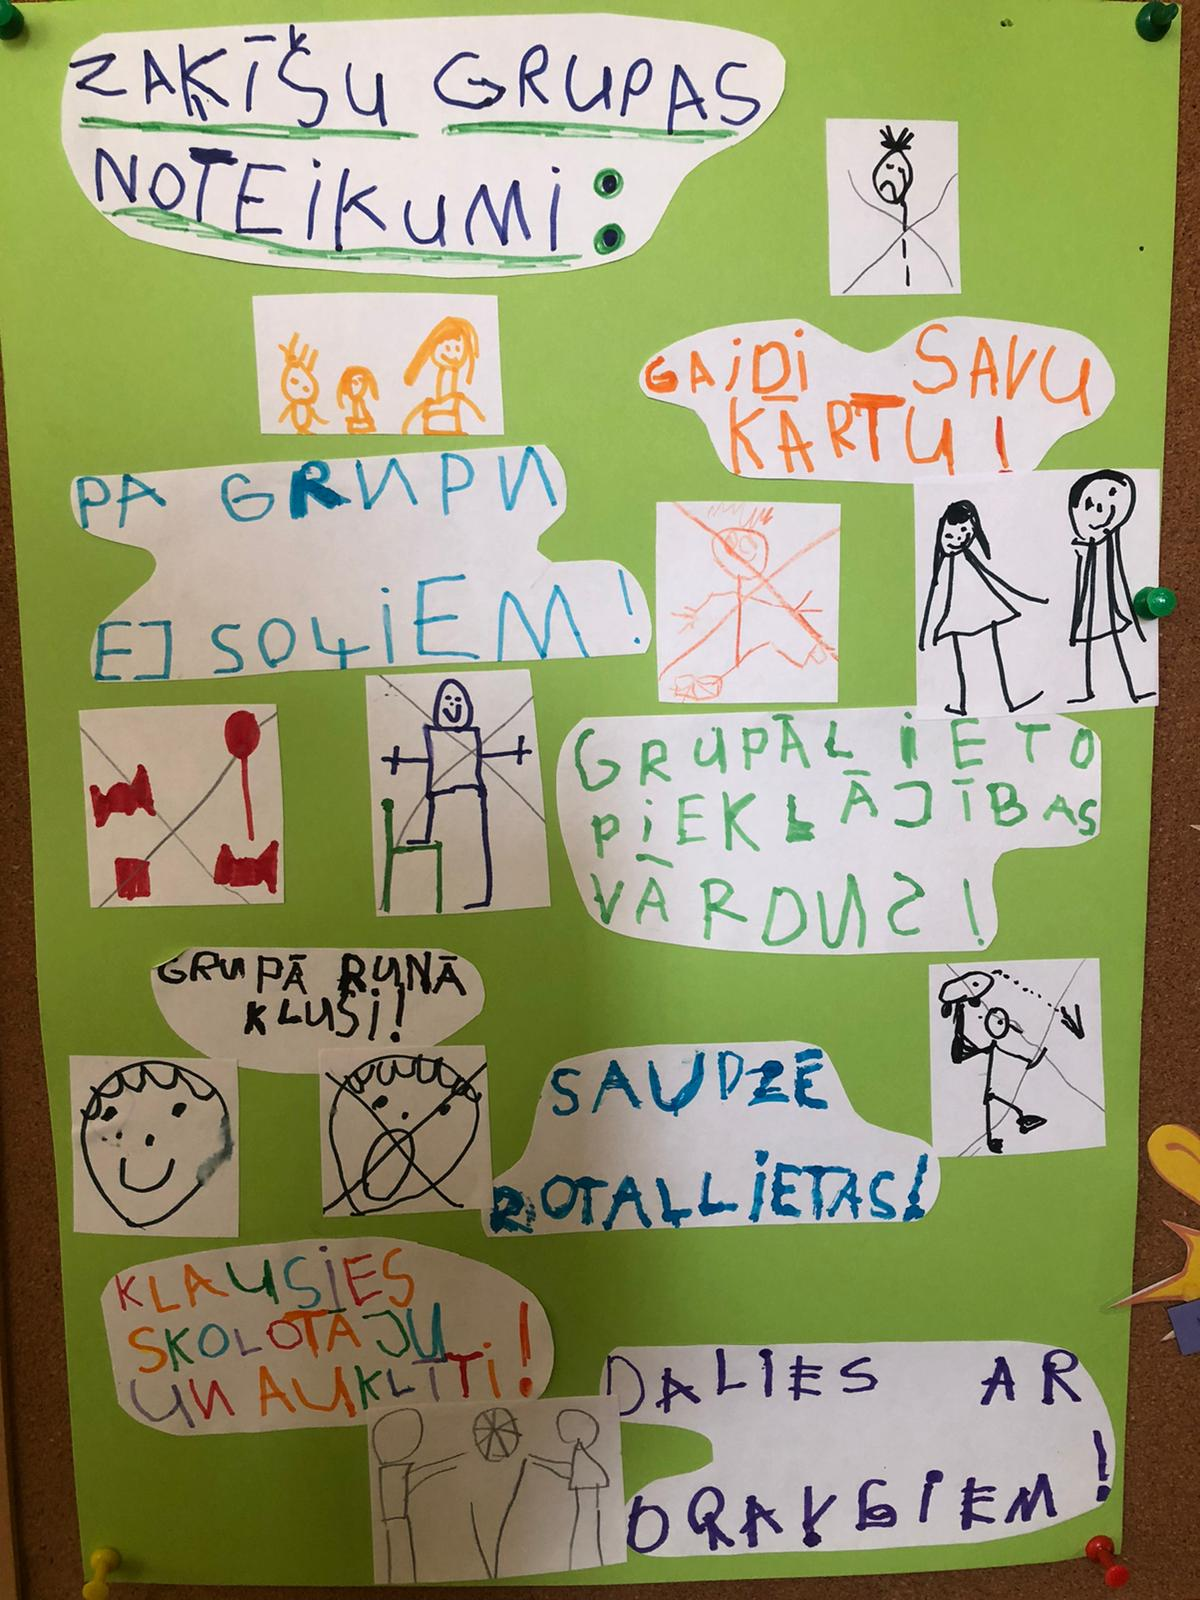 ZAĶĪŠU GRUPAS
NOTEIKUMI:
GAIDI SAVU
KĀRTU!
PA GRUPU
EJ SOĻIEM!
GRUPĀ LIETO
PIEKLĀJĪBAS
VĀRDUS!
GRUPĀ RUNĀ
KLUSI!
SAUDZE
ROTAĻLIETAS!
KLAUSIES
SKOLOTĀJU
UN AUKLĪTI!
DALIES AR
DRAUGIEM!